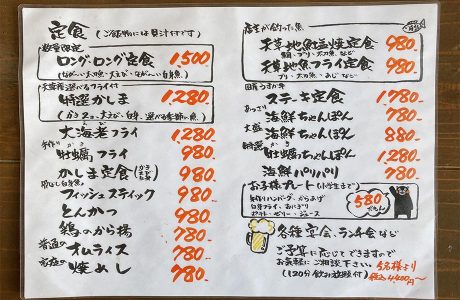 定食
(ご飯物には貝汁付です)
数量限定
ロング・ロング定食 1,500
(ながーい太刀魚・大えび・ながーい白身魚)
選べるフライ付
特選かしま 1,280-
大海老フライ 1,280-
手作り
牡蠣フライ 980-
かしま定食 980-
フィッシュスティック 980-
とんかつ 980-
鶏のから揚 780-
普通の
オムライス 780-
家庭の
焼めし 780-
店主が釣った魚
天草地魚塩焼定食 980-
天草地魚フライ定食 980-
ブリ・太刀魚・あじなど
ステーキ定食 1,780
あっさり
海鮮ちゃんぽん 780-
大盛
海鮮ちゃんぽん 880-
特選
牡蠣ちゃんぽん 1,280
海鮮パリパリ 780-
お子様プレート(小学生まで)
手作りハンバーグ・からあげ
白身フライ・おにぎり
ポテト・ゼリー・ジュース
580
各種宴会、ランチ会など
ご予算に応じてできますので
お気軽にご相談下さい。
(120分飲み放題付)
5名様より
税込4,400円〜